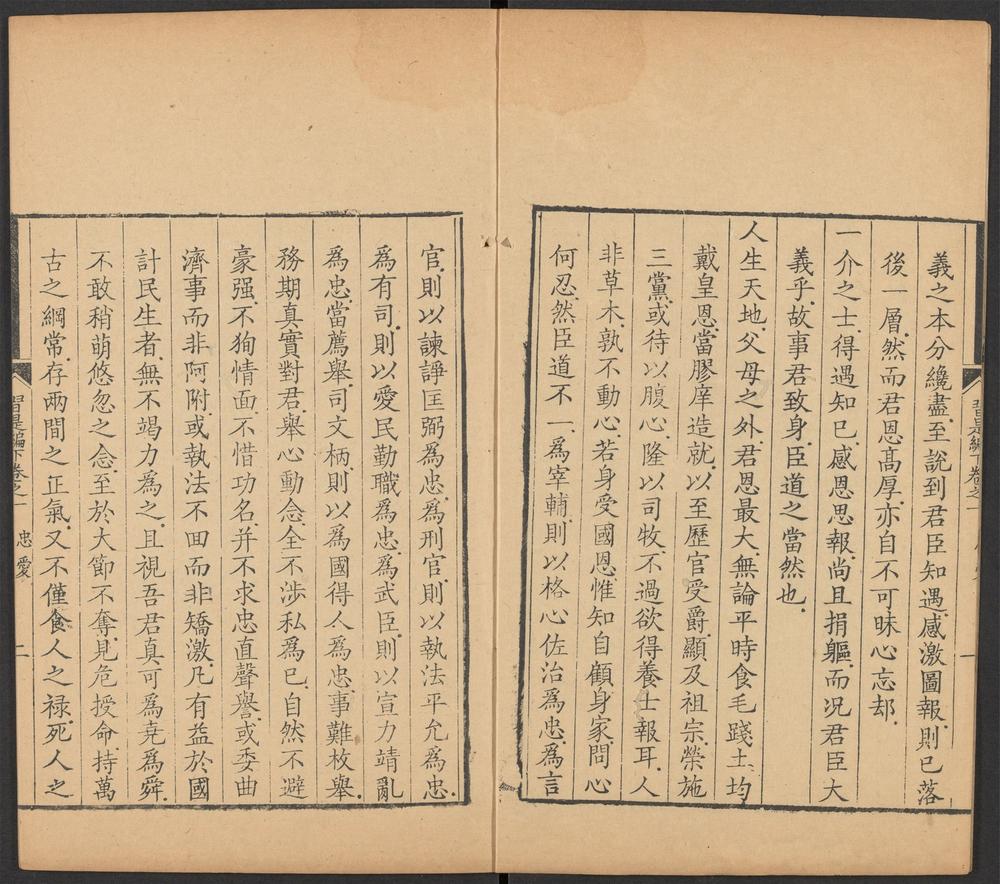 義之本分纔盡至說到君臣知遇感激圖報則已落
後一層然而君恩髙厚亦自不可昧心忘却
一介之士得遇知已感恩思報尚且捐軀而况君臣大
義乎故事君致身臣道之當然也
人生天地父母之外君恩最大無論平時食毛踐土均
戴皇恩當膠庠造就以至歷官受爵顯及祖宗榮施
三黨或待以腹心隆以司牧不過欲得養士報耳人
非草木孰不動心若身受國恩惟知自顧身家問心
何忍然臣道不一爲宰輔則以格心佐治爲忠爲言
習是編下卷之一
一
官則以諫諍匡弼爲忠爲刑官則以執法平允爲忠
爲有司則以愛民勤職爲忠爲武臣則以宣力靖亂
爲忠當薦舉司文柄則以爲國得人爲忠事難枚舉
務期真實對君舉心動念全不涉私爲已自然不避
豪强不狥情面不惜功名并不求忠直聲譽或委曲
濟事而非阿附或執法不回而非矯激凡有益於國
計民生者無不竭力爲之且視吾君真可爲堯爲舜
不敢稍萌悠忽之念至於大節不奪見危授命持萬
古之綱常存兩間之正氣又不僅食人之禄死人之
習是編下卷之一 忠愛 二